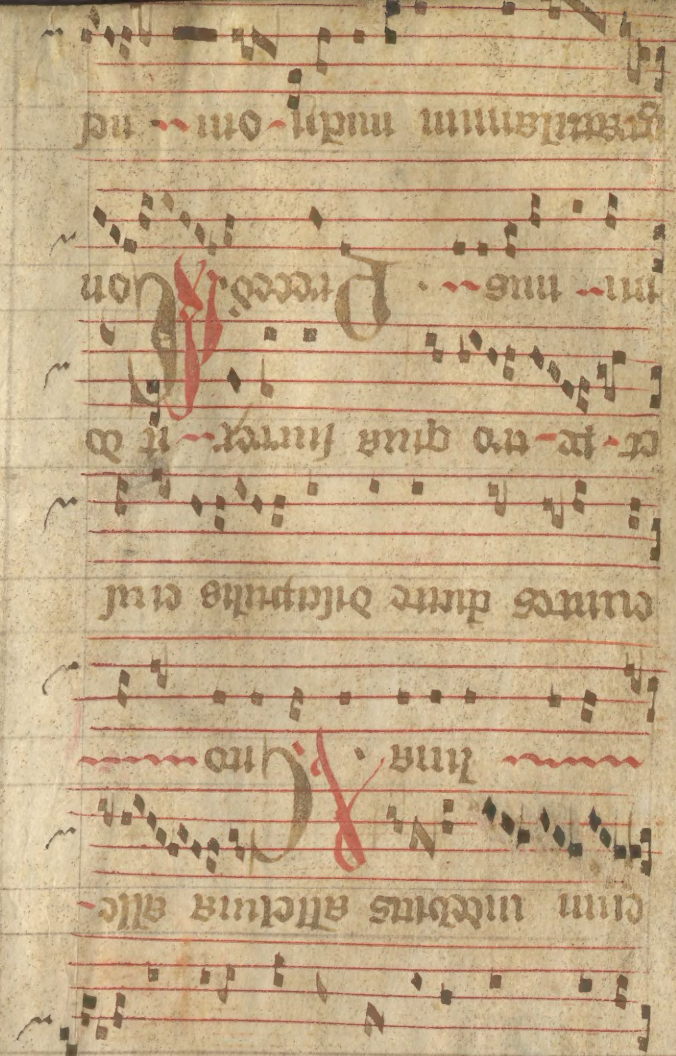 eum videbitis alleluia alle-
luia . V. Cito
euntes dicite discipulis eius
et pe-tro quia surrex-it do
mi-nus . Preced. V. Con
gratulamini michi om-nes